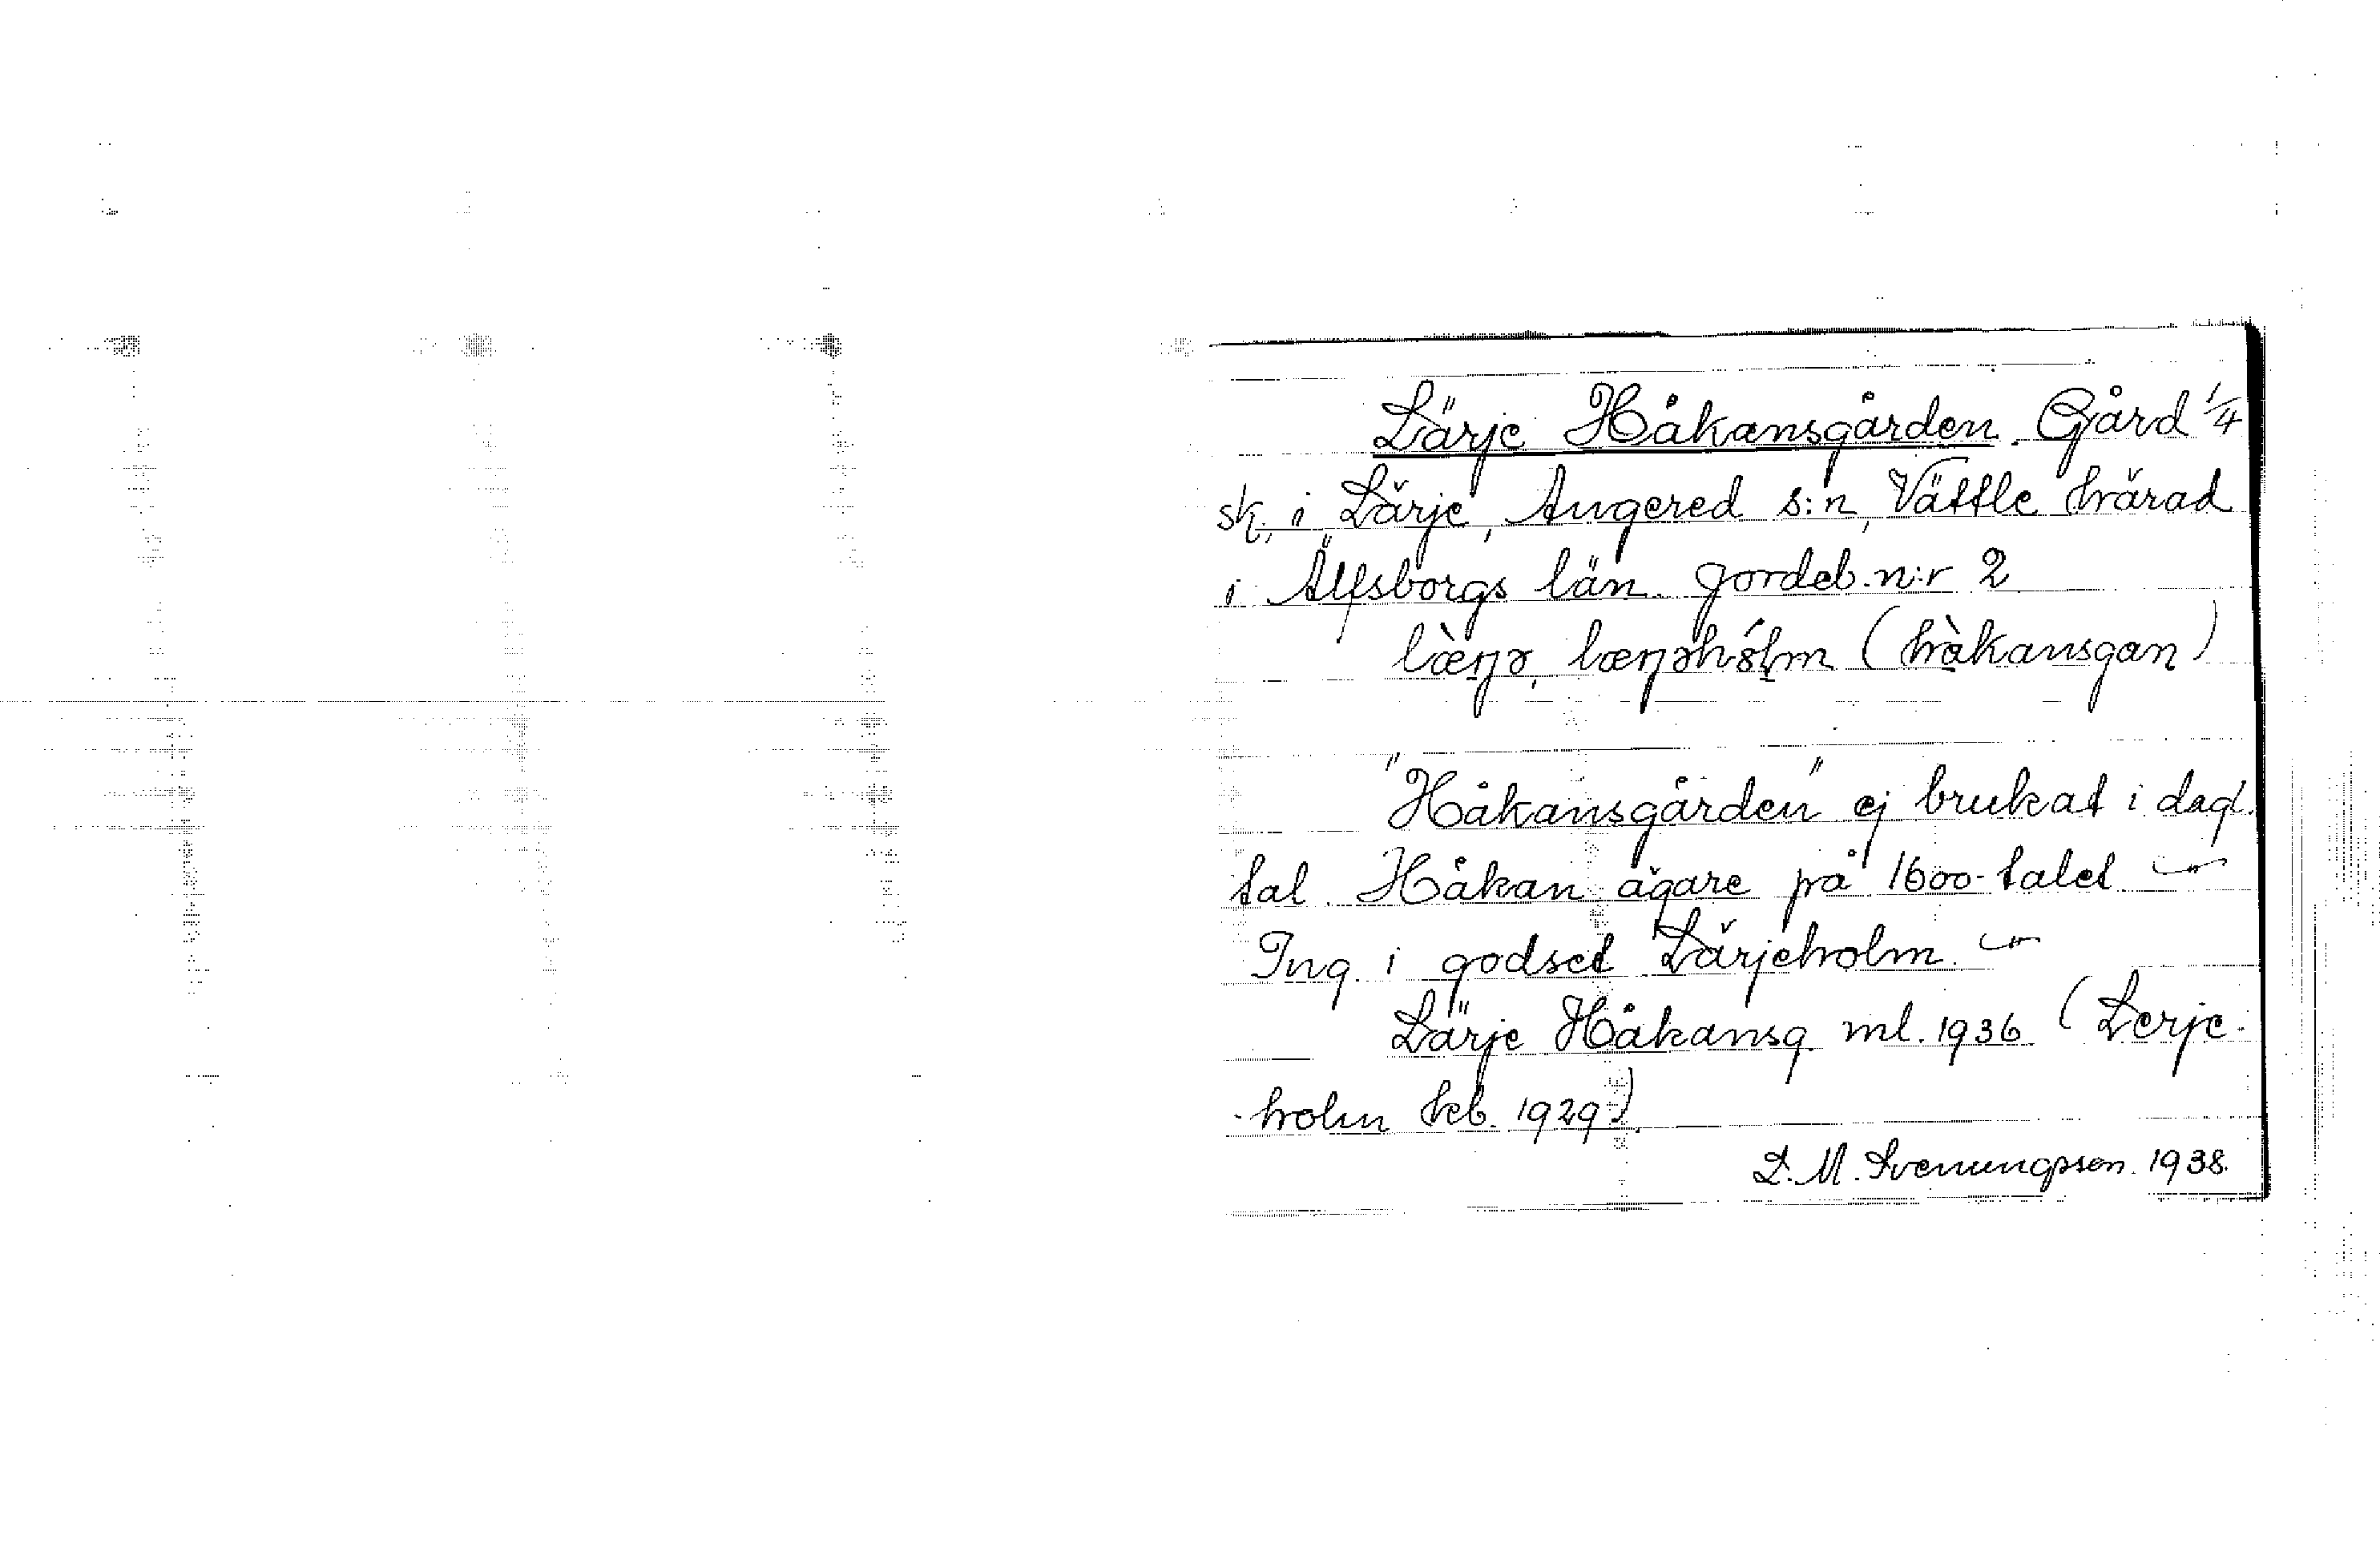 Lärje Håkansgården. Gård 1/4
sk. i Lärje, Angered s:n, Vättle härad
i Älfsborgs län. Jordeb. n:r 2
(hàkansgan)
"Håkansgården" ej brukat i dagl.
tal. Håkan ägare på 1600-talet
Ing. i godset Lärjeholm.
Lärje Håkansg. ml. 1936 (Lerje-
holm kb. 1929).
L. M. Svenungsson. 1938.